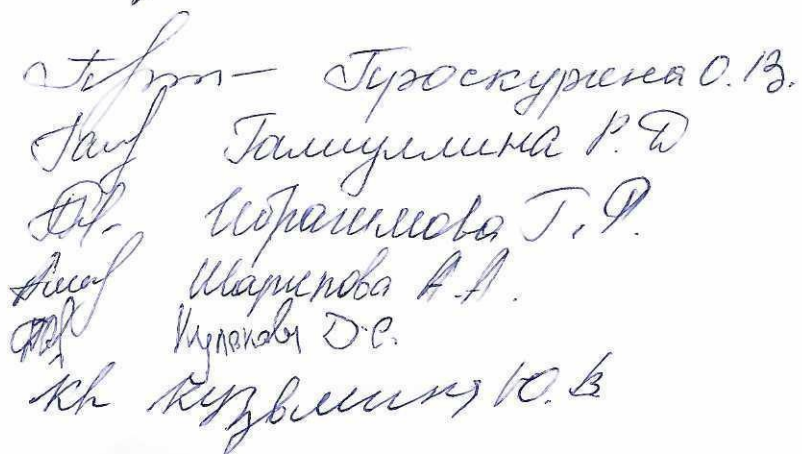 Проскурина О.В.
Галиуллина Р.Д
Ибрагимова Г.Ф.
Шарипова А.А.
Кулакова Д.С.
Кузьмина Ю.В